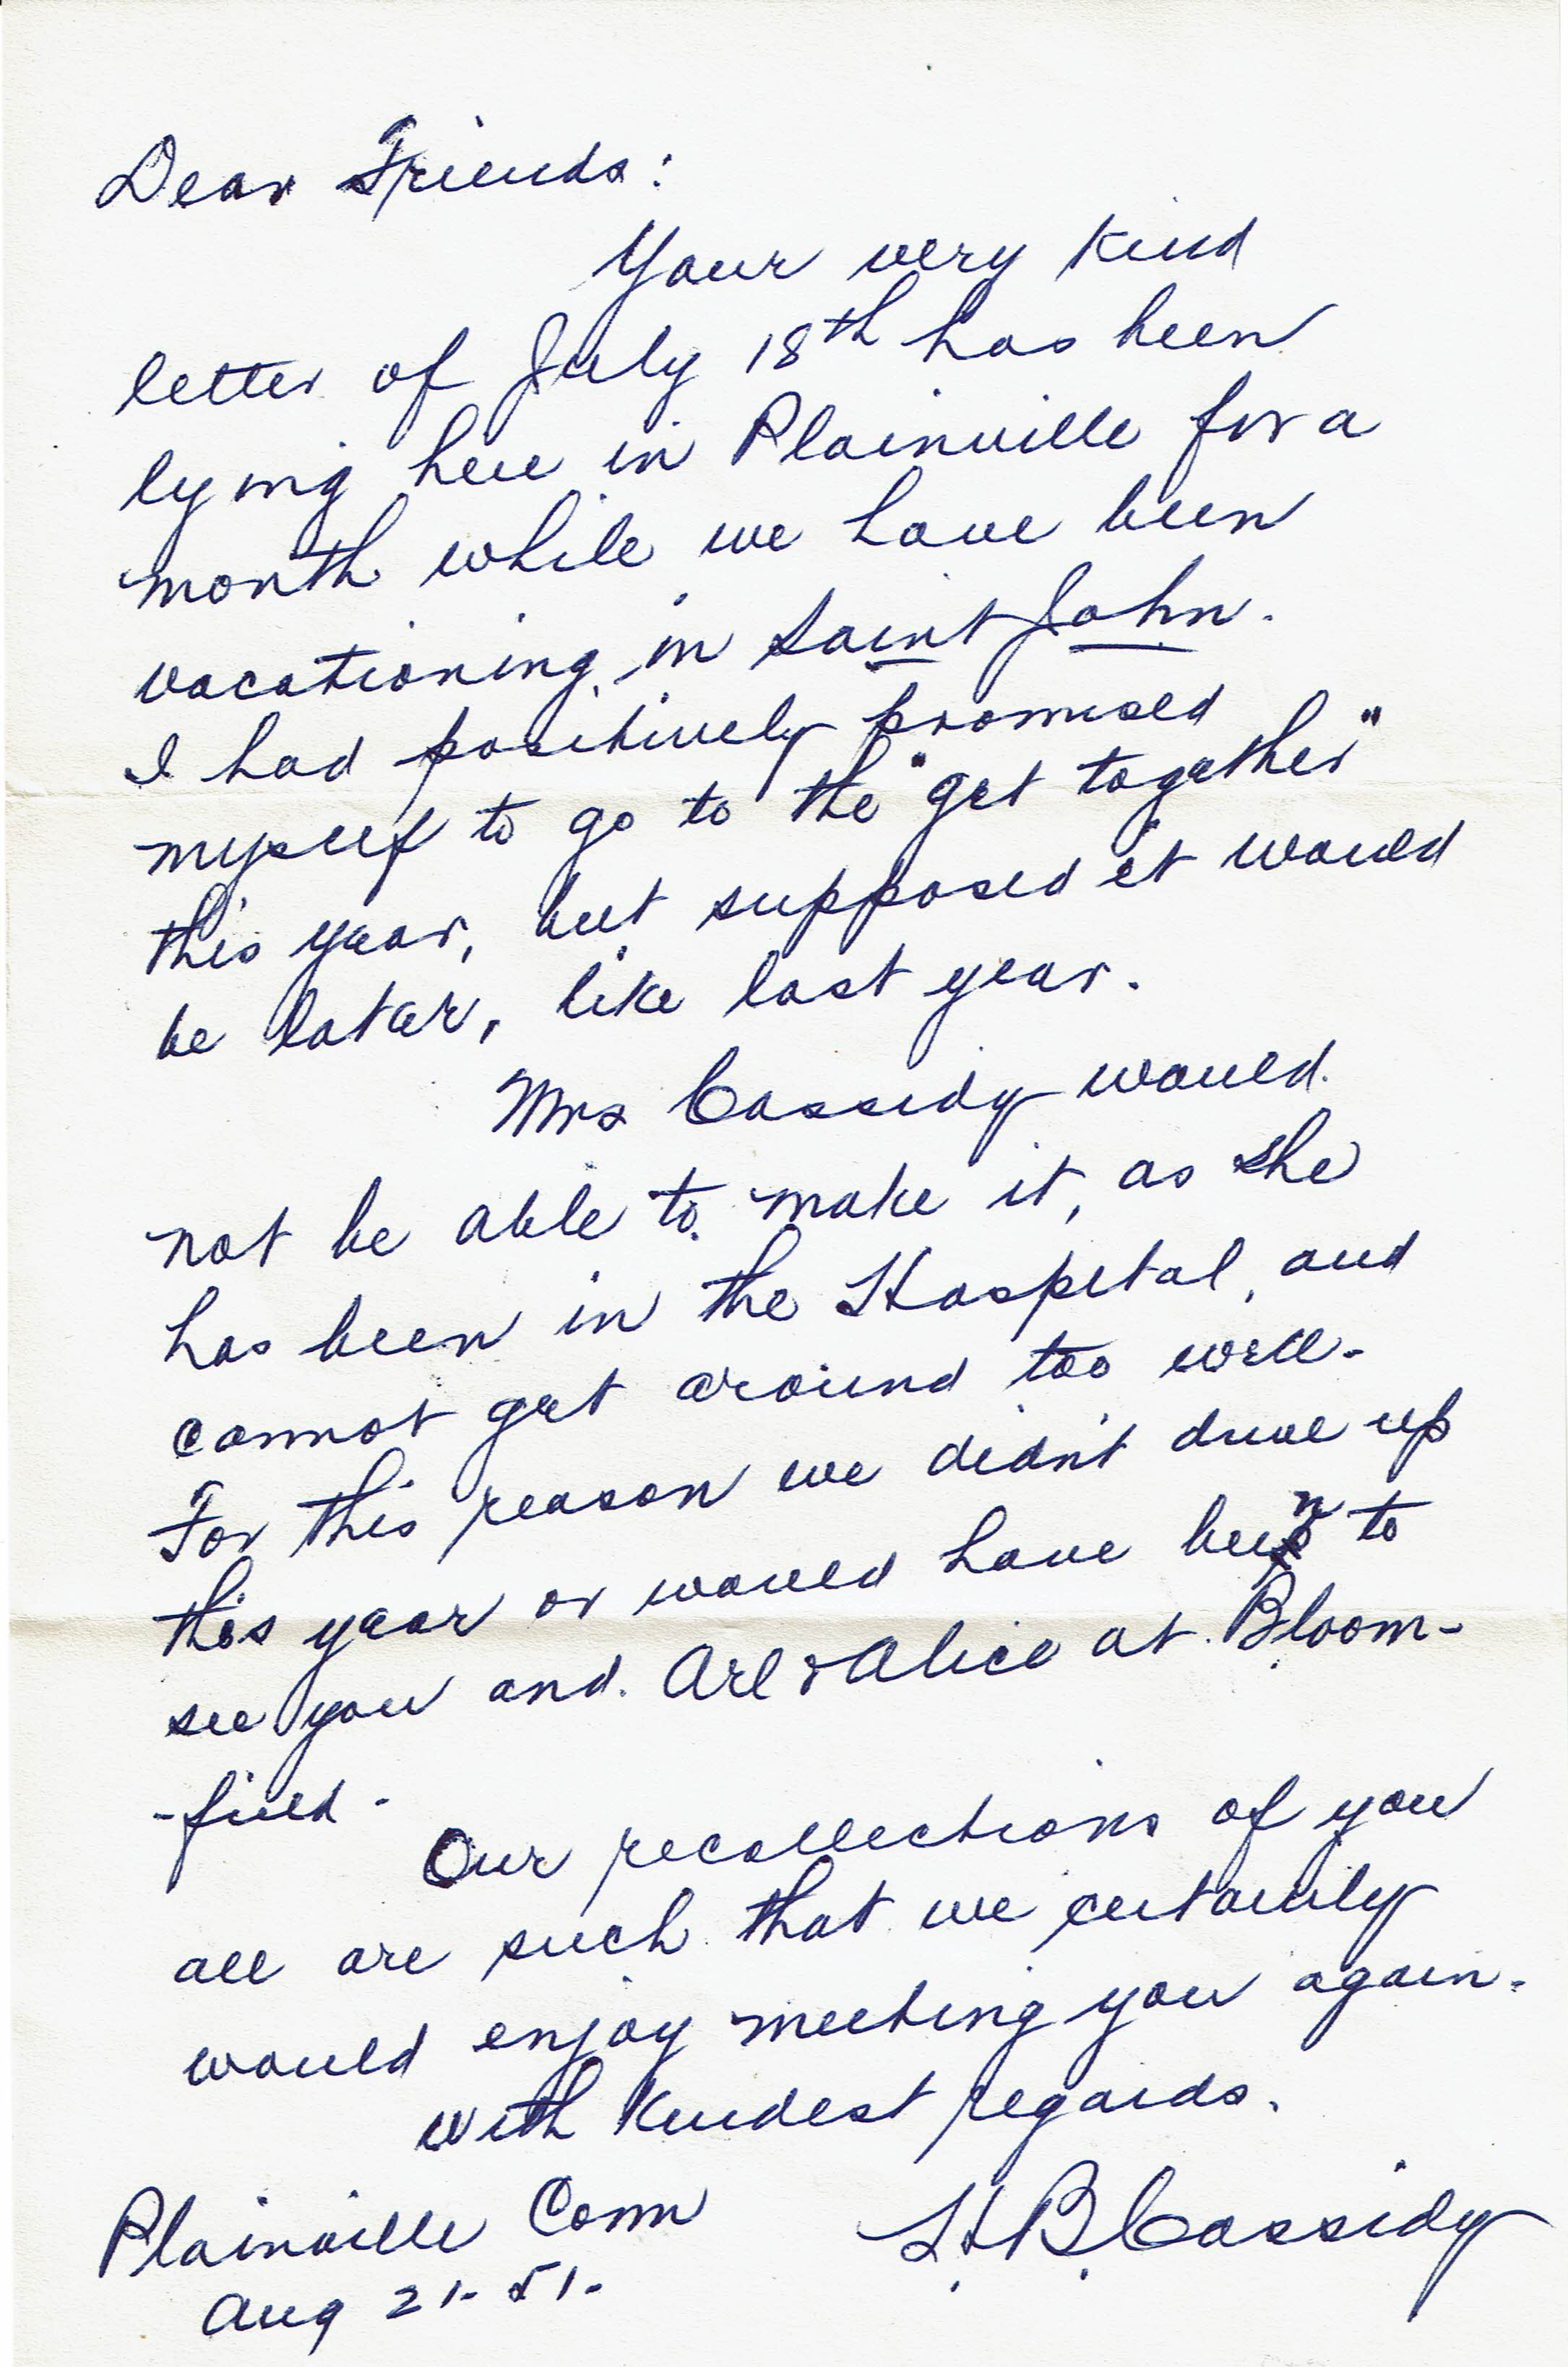 Dear Friends:
Your very kind
letter of July 18th has been
lying here in Plainville for a
month while we have been
vacationing in Saint John.
I had positively promised
myself to go to the "get together"
this year, but supposed it would
be later, like last year.
Mrs Cassidy would
not be able to make it, as she
has been in the Hospital, and
cannot get around too well.
For this reason we didn't drive up
this year or would have been to
see you and Arl & Alice at Bloom-
-field.
Our recollections of you
all are such that we certainly
would enjoy meeting you again.
with kindest regards.
H.B. Cassidy
Plainville Conn
Aug 21. 51.